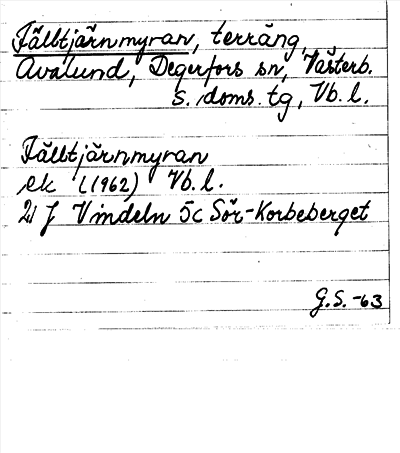 Fälltjärnmyran, terräng,
Avalund, Degerfors sn, Västerb.
s. doms. tg, Vb. l.
Fälltjärnmyran
ek (1962) Vb. l.
21 J Vindeln 5c Sör-Korbeberget
G.S.-63